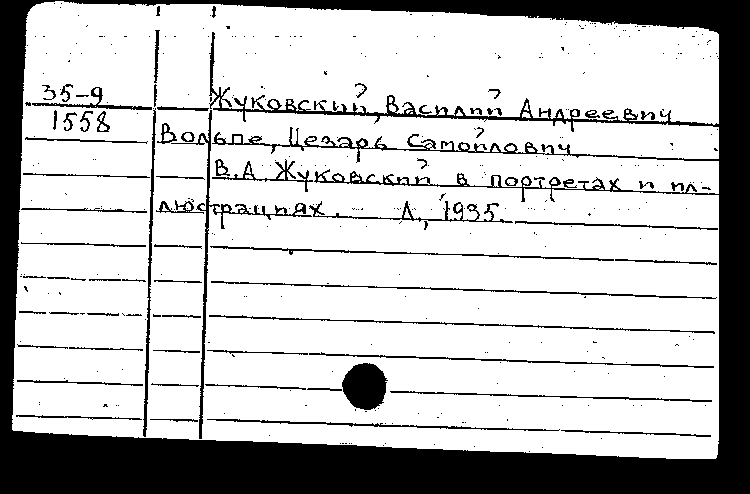 35-9 Жуковский, Василий Андреевич
1558 Вольпе, Цезарь Самойлович
В.А. Жуковский в портретах и ил-
люстрациях. Л., 1935.